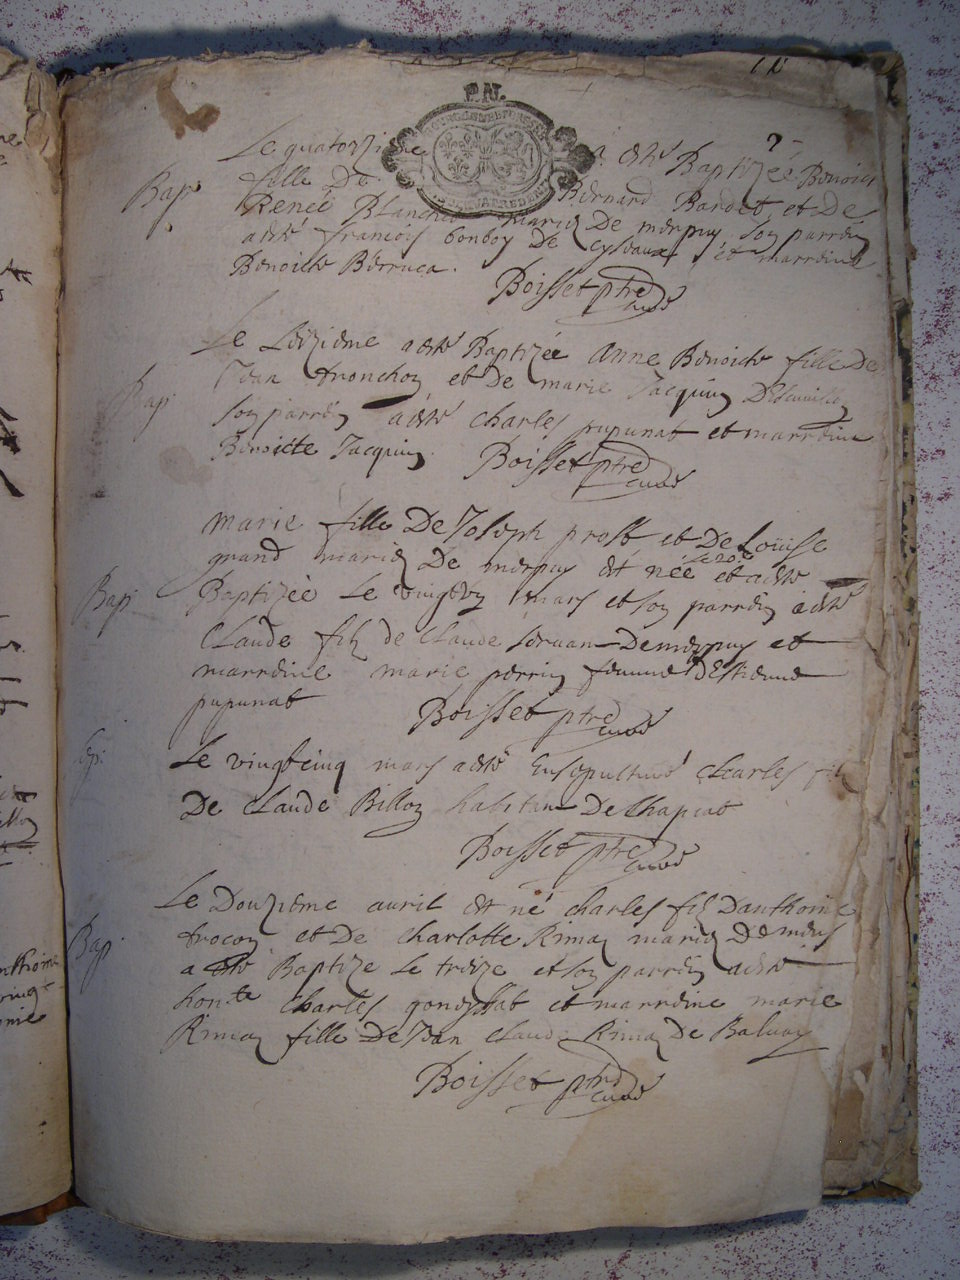 P.N.
Le quatorzieme a esté Baptizée Benoiste
Bap. fille De Bernard Bardet et De
Reneé Blanche mariez De merpuy son parrin
a esté francois bonboy De et marraine
Benoiste Berruca.
Boisset ptre curé
Le seizieme a esté Baptizée Anne Benoiste fille De
Bap. Jean tronchon et De marie Jacquin
son parrin a esté Charles pupunat et marreine
Benoiste Jacquin. Boisset ptre curé
marie fille De Joseph prost et De Loüise
grand mariez De merpuy est née le 20e et a esté
Bap. Baptizée Le vingt un mars et son parrin a esté
Claude filz de Claude De merpuy et
marreine marie perrin femme D'Estienne
pupunat Boisset ptre curé
Le vingt cinq mars a esté Ensepulturé Charles filz
De Claude Billon habitan De Chapiat
Boisset ptre curé
Le Douzieme auril est né Charles filz D'anthoine
Bap. trocon et De Charlotte Rimaz mariez De
a esté Baptizé Le treize et son parrin a esté
hon.te Charles gondissat et marreine marie
Rimaz fille De Jean Claude Rimaz De Baluay
Boisset ptre curé